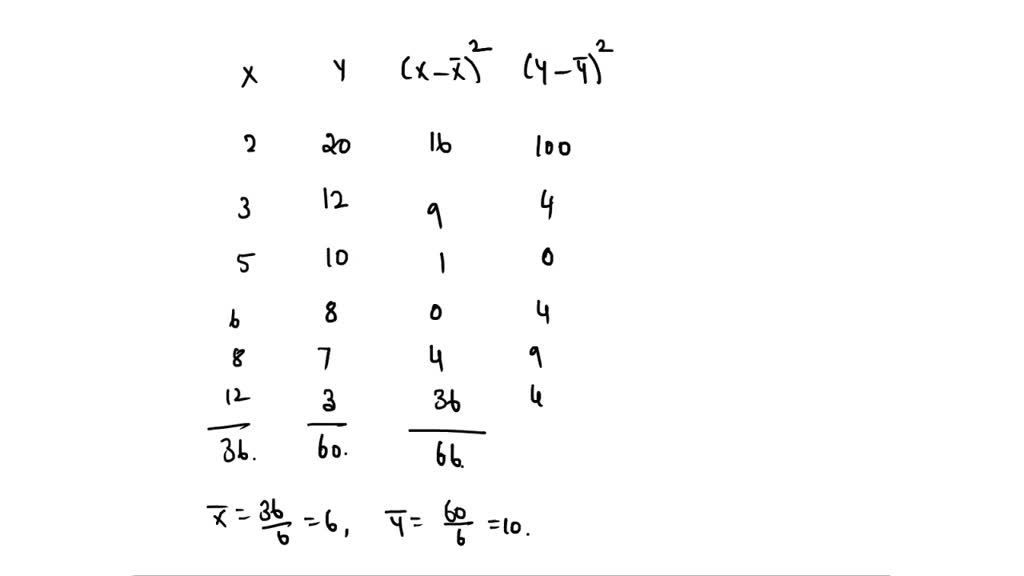 x y (x-x̄)² (y-ȳ)²
2 20 16 100
3 12 9 4
5 10 1 0
6 8 0 4
8 7 4 9
12 3 36 4
36. 60. 66.
x̄ = 36/6 = 6, ȳ = 60/6 = 10.